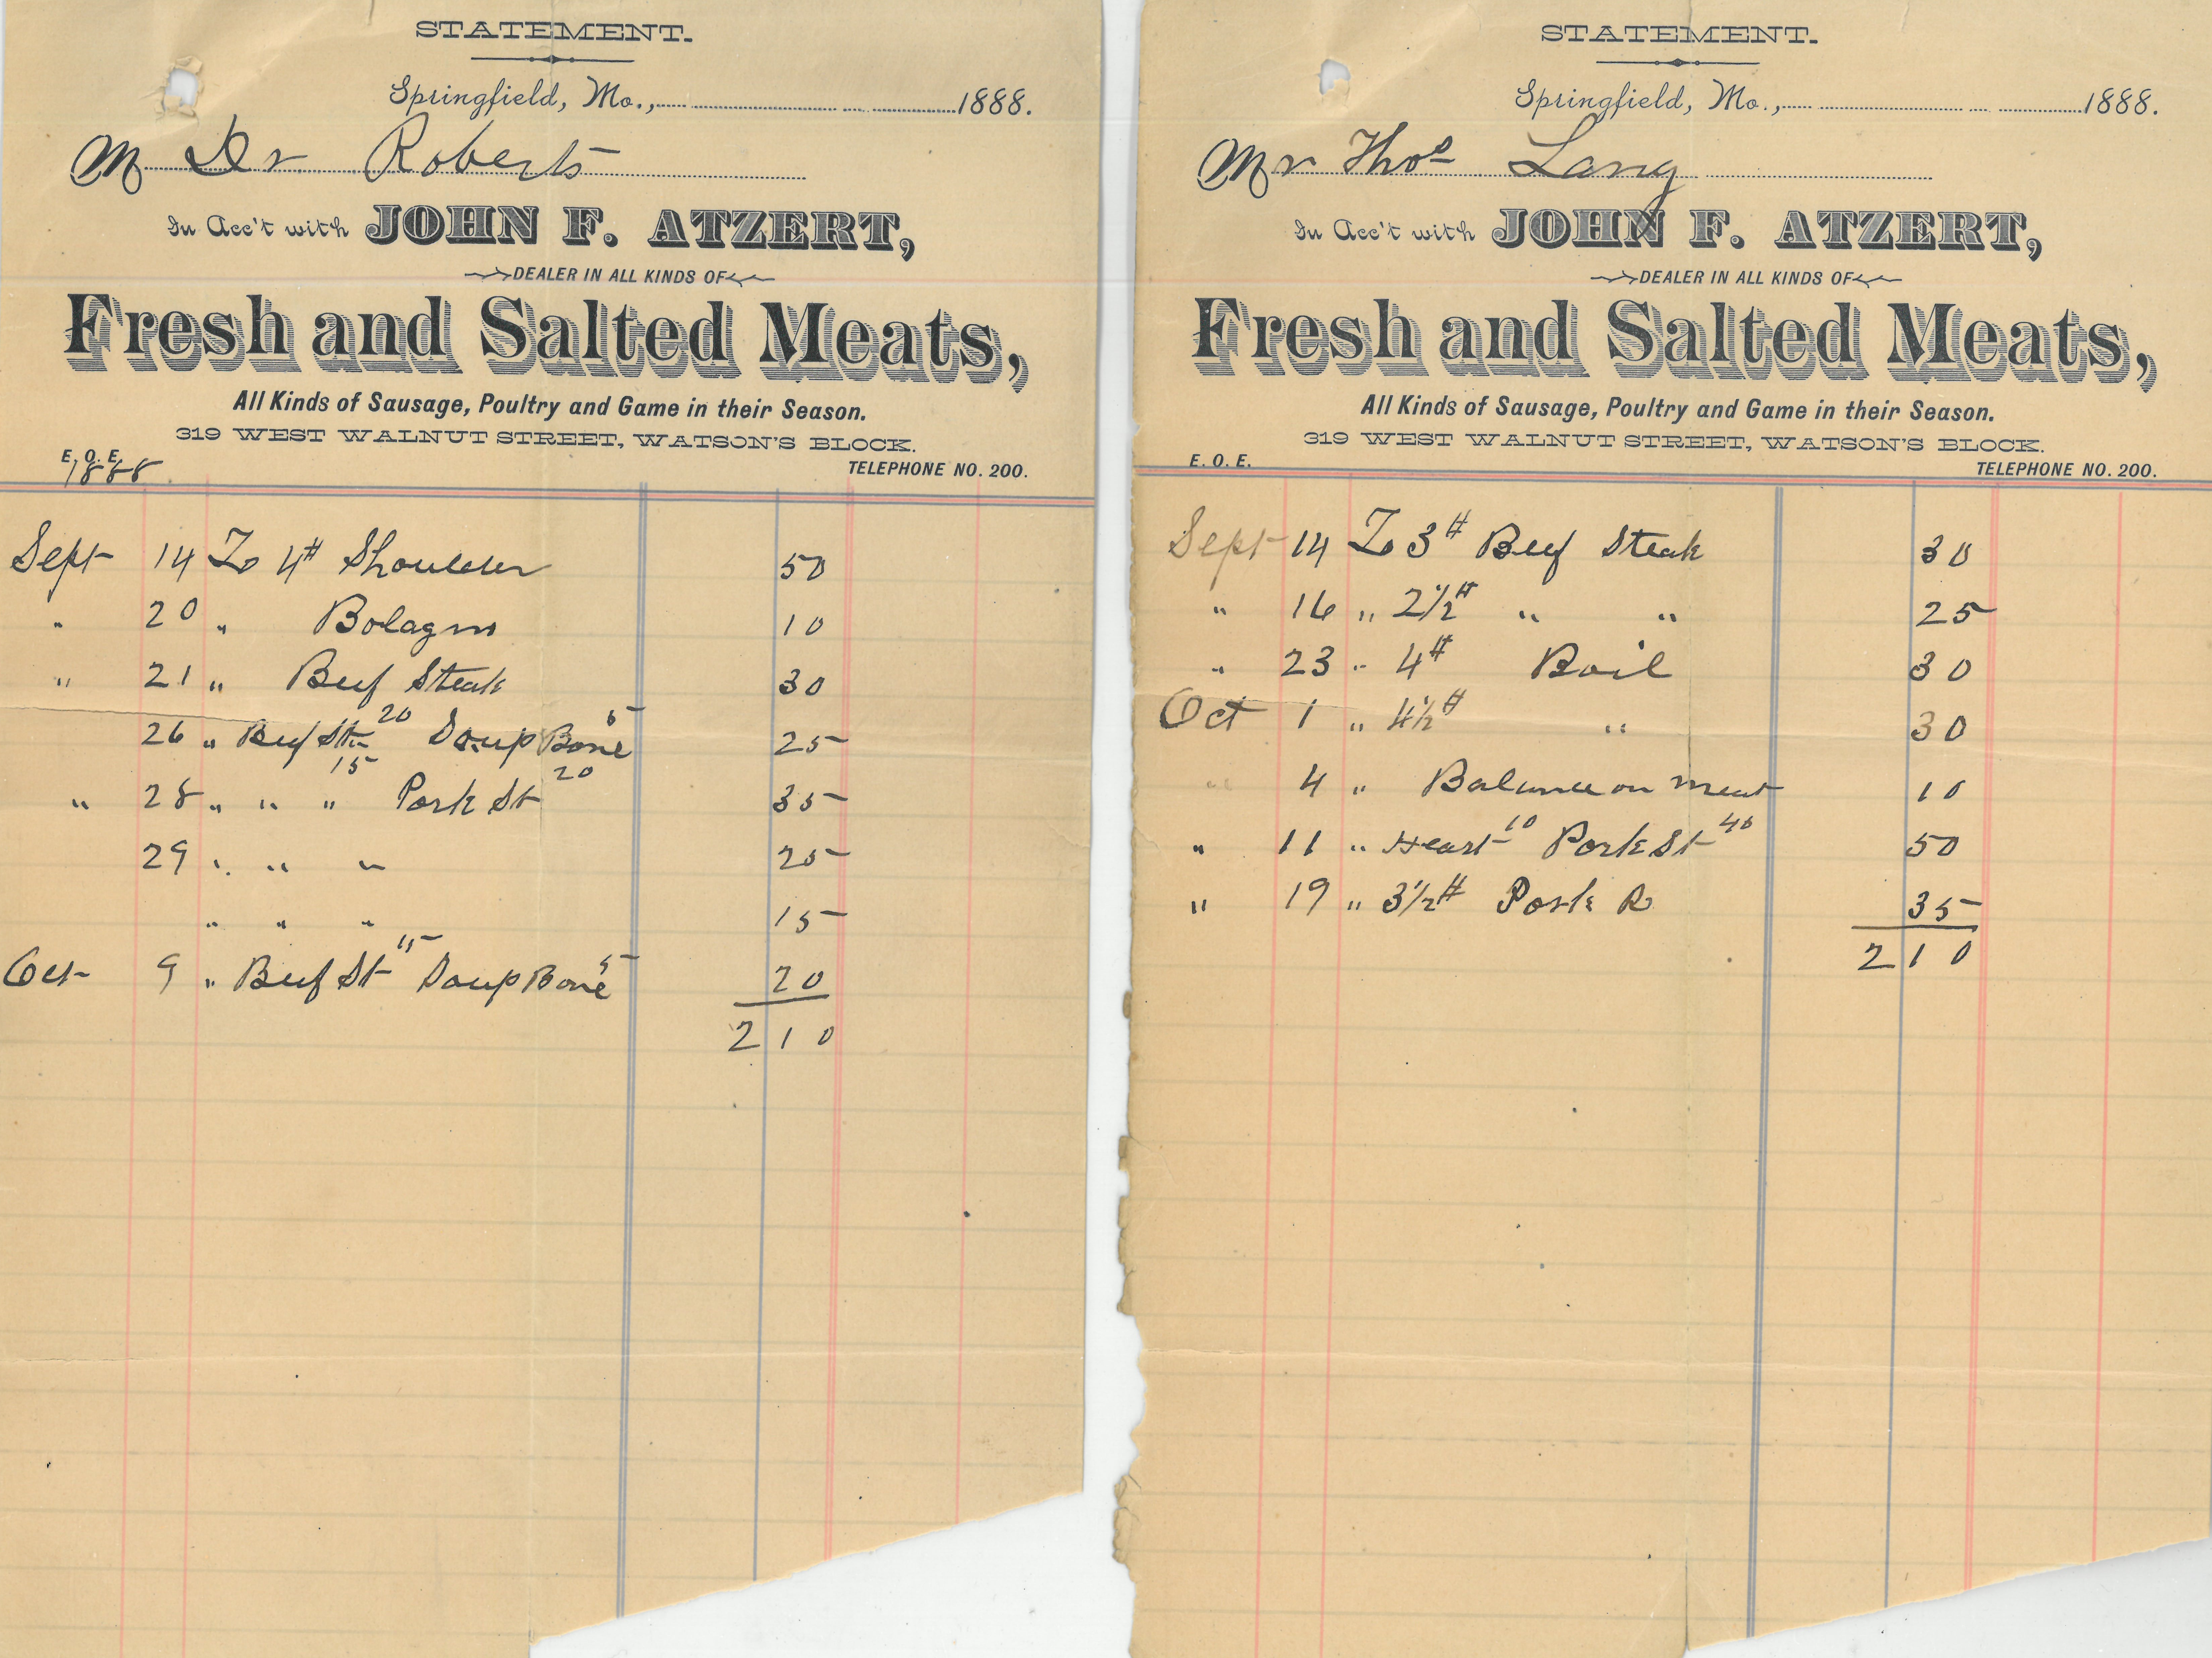 STATEMENT.
Springfield, Mo., 1888.
M Dr Roberts
In Acc't with JOHN F. ATZERT,
DEALER IN ALL KINDS OF
Fresh and Salted Meats,
All Kinds of Sausage, Poultry and Game in their Season.
319 WEST WALNUT STREET, WATSON'S BLOCK.
E. O. E. TELEPHONE NO. 200.
1888
Sept 14 To 4# Shoulder 50
" 20 " Bolagna 10
" 21 " Beef Steak 30
26 " Beef St 20 Soup Bone 5 25
" 28 " " " 15 Pork St 20 35
29 " " " 25
" " " 15
Oct 9 " Beef St 15 Soup Bone 5 20
2 10
STATEMENT.
Springfield, Mo., 1888.
Mr Thos Lang
In Acc't with JOHN F. ATZERT,
DEALER IN ALL KINDS OF
Fresh and Salted Meats,
All Kinds of Sausage, Poultry and Game in their Season.
319 WEST WALNUT STREET, WATSON'S BLOCK.
E. O. E. TELEPHONE NO. 200.
Sept 14 To 3# Beef Steak 30
" 16 " 2 1/2# " " 25
" 23 " 4# Boil 30
Oct 1 " 4 1/2# " 30
" 4 " Balance on meat 10
" 11 " Heart 10 Pork St 40 50
" 19 " 3 1/2# Pork R 35
2 10